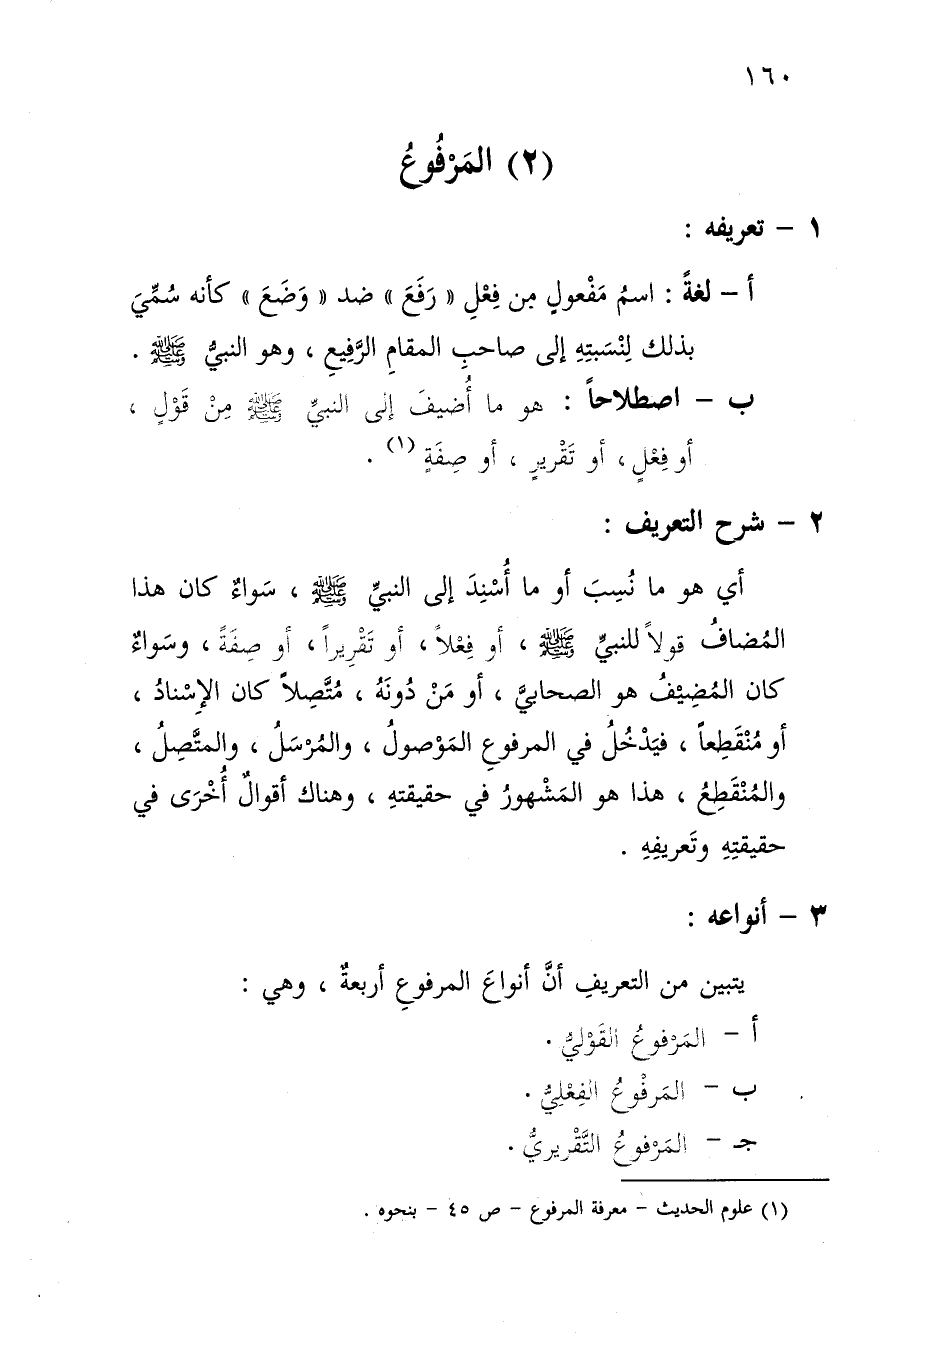 ١٦٠
(٢) المَرْفُوعُ
١ – تعريفه :
أ – لغةً : اسمُ مَفْعولٍ مِن فِعْلِ « رَفَعَ » ضد « وَضَعَ » كأنه سُمِّيَ
بذلك لِنْسَبتِهِ إلى صاحبِ المقامِ الرَّفِيعِ ، وهو النبيُّ ﷺ .
ب – اصطلاحاً : هو ما أُضيفَ إلى النبيِّ ﷺ مِنْ قَوْلٍ ،
أو فِعْلٍ ، أو تَقْريرٍ ، أو صِفَةٍ (١) .
٢ – شرح التعريف :
أي هو ما نُسِبَ أو ما أُسْنِدَ إلى النبيِّ ﷺ ، سَواءٌ كان هذا
المُضافُ قولاً للنبيِّ ﷺ ، أو فِعْلاً ، أو تَقْرِيراً ، أو صِفَةً ، وسَواءٌ
كان المُضِيْفُ هو الصحابيَّ ، أو مَنْ دُونَهُ ، مُتَّصِلاً كان الإِسْنادُ ،
أو مُنْقَطِعاً ، فيَدْخُلُ في المرفوعِ المَوْصولُ ، والمُرْسَلُ ، والمتَّصِلُ ،
والمُنْقَطِعُ ، هذا هو المَشْهورُ في حقيقتهِ ، وهناك أقوالٌ أُخْرَى في
حقيقتِهِ وتَعريفِهِ .
٣ – أنواعه :
يتبين من التعريفِ أنَّ أنواعَ المرفوعِ أربعةٌ ، وهي :
أ – المَرْفوعُ القَوْليُّ .
ب – المَرفْوعُ الفِعْلِيُّ .
جـ – المَرْفوعُ التَّقْريريُّ .
(١) علوم الحديث – معرفة المرفوع – ص ٤٥ – بنحوه .